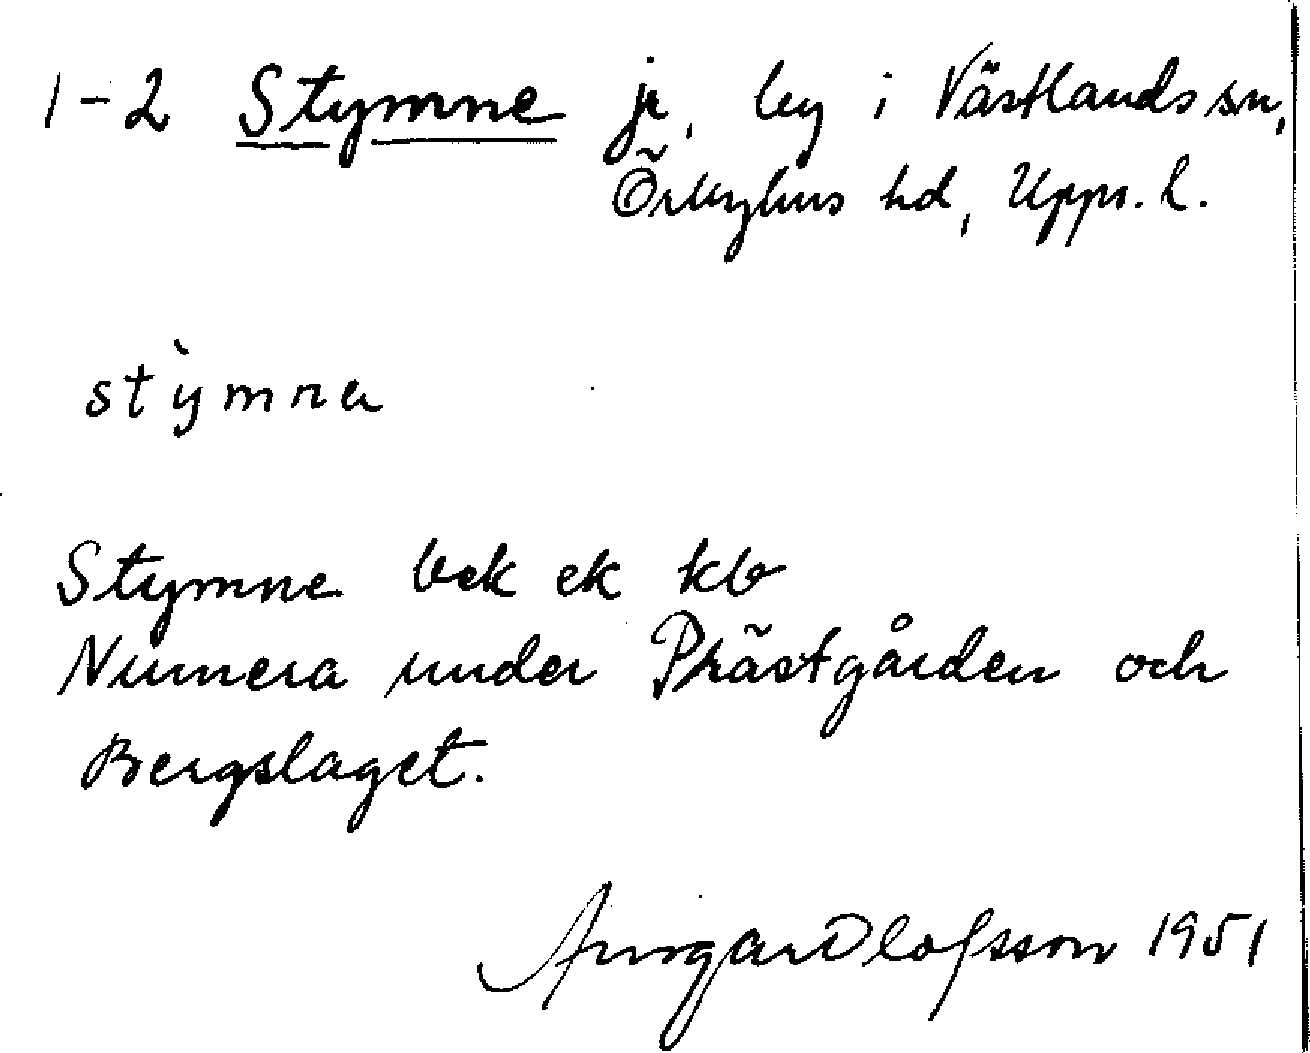 1-2 Stymne jr, by i Västlands sn,
Örbyhus hd, Upps. l.
stỳmna
Stymne bek ek kb
Numera under Prästgården och
Bergslaget.
Ansgar Olofsson 1951